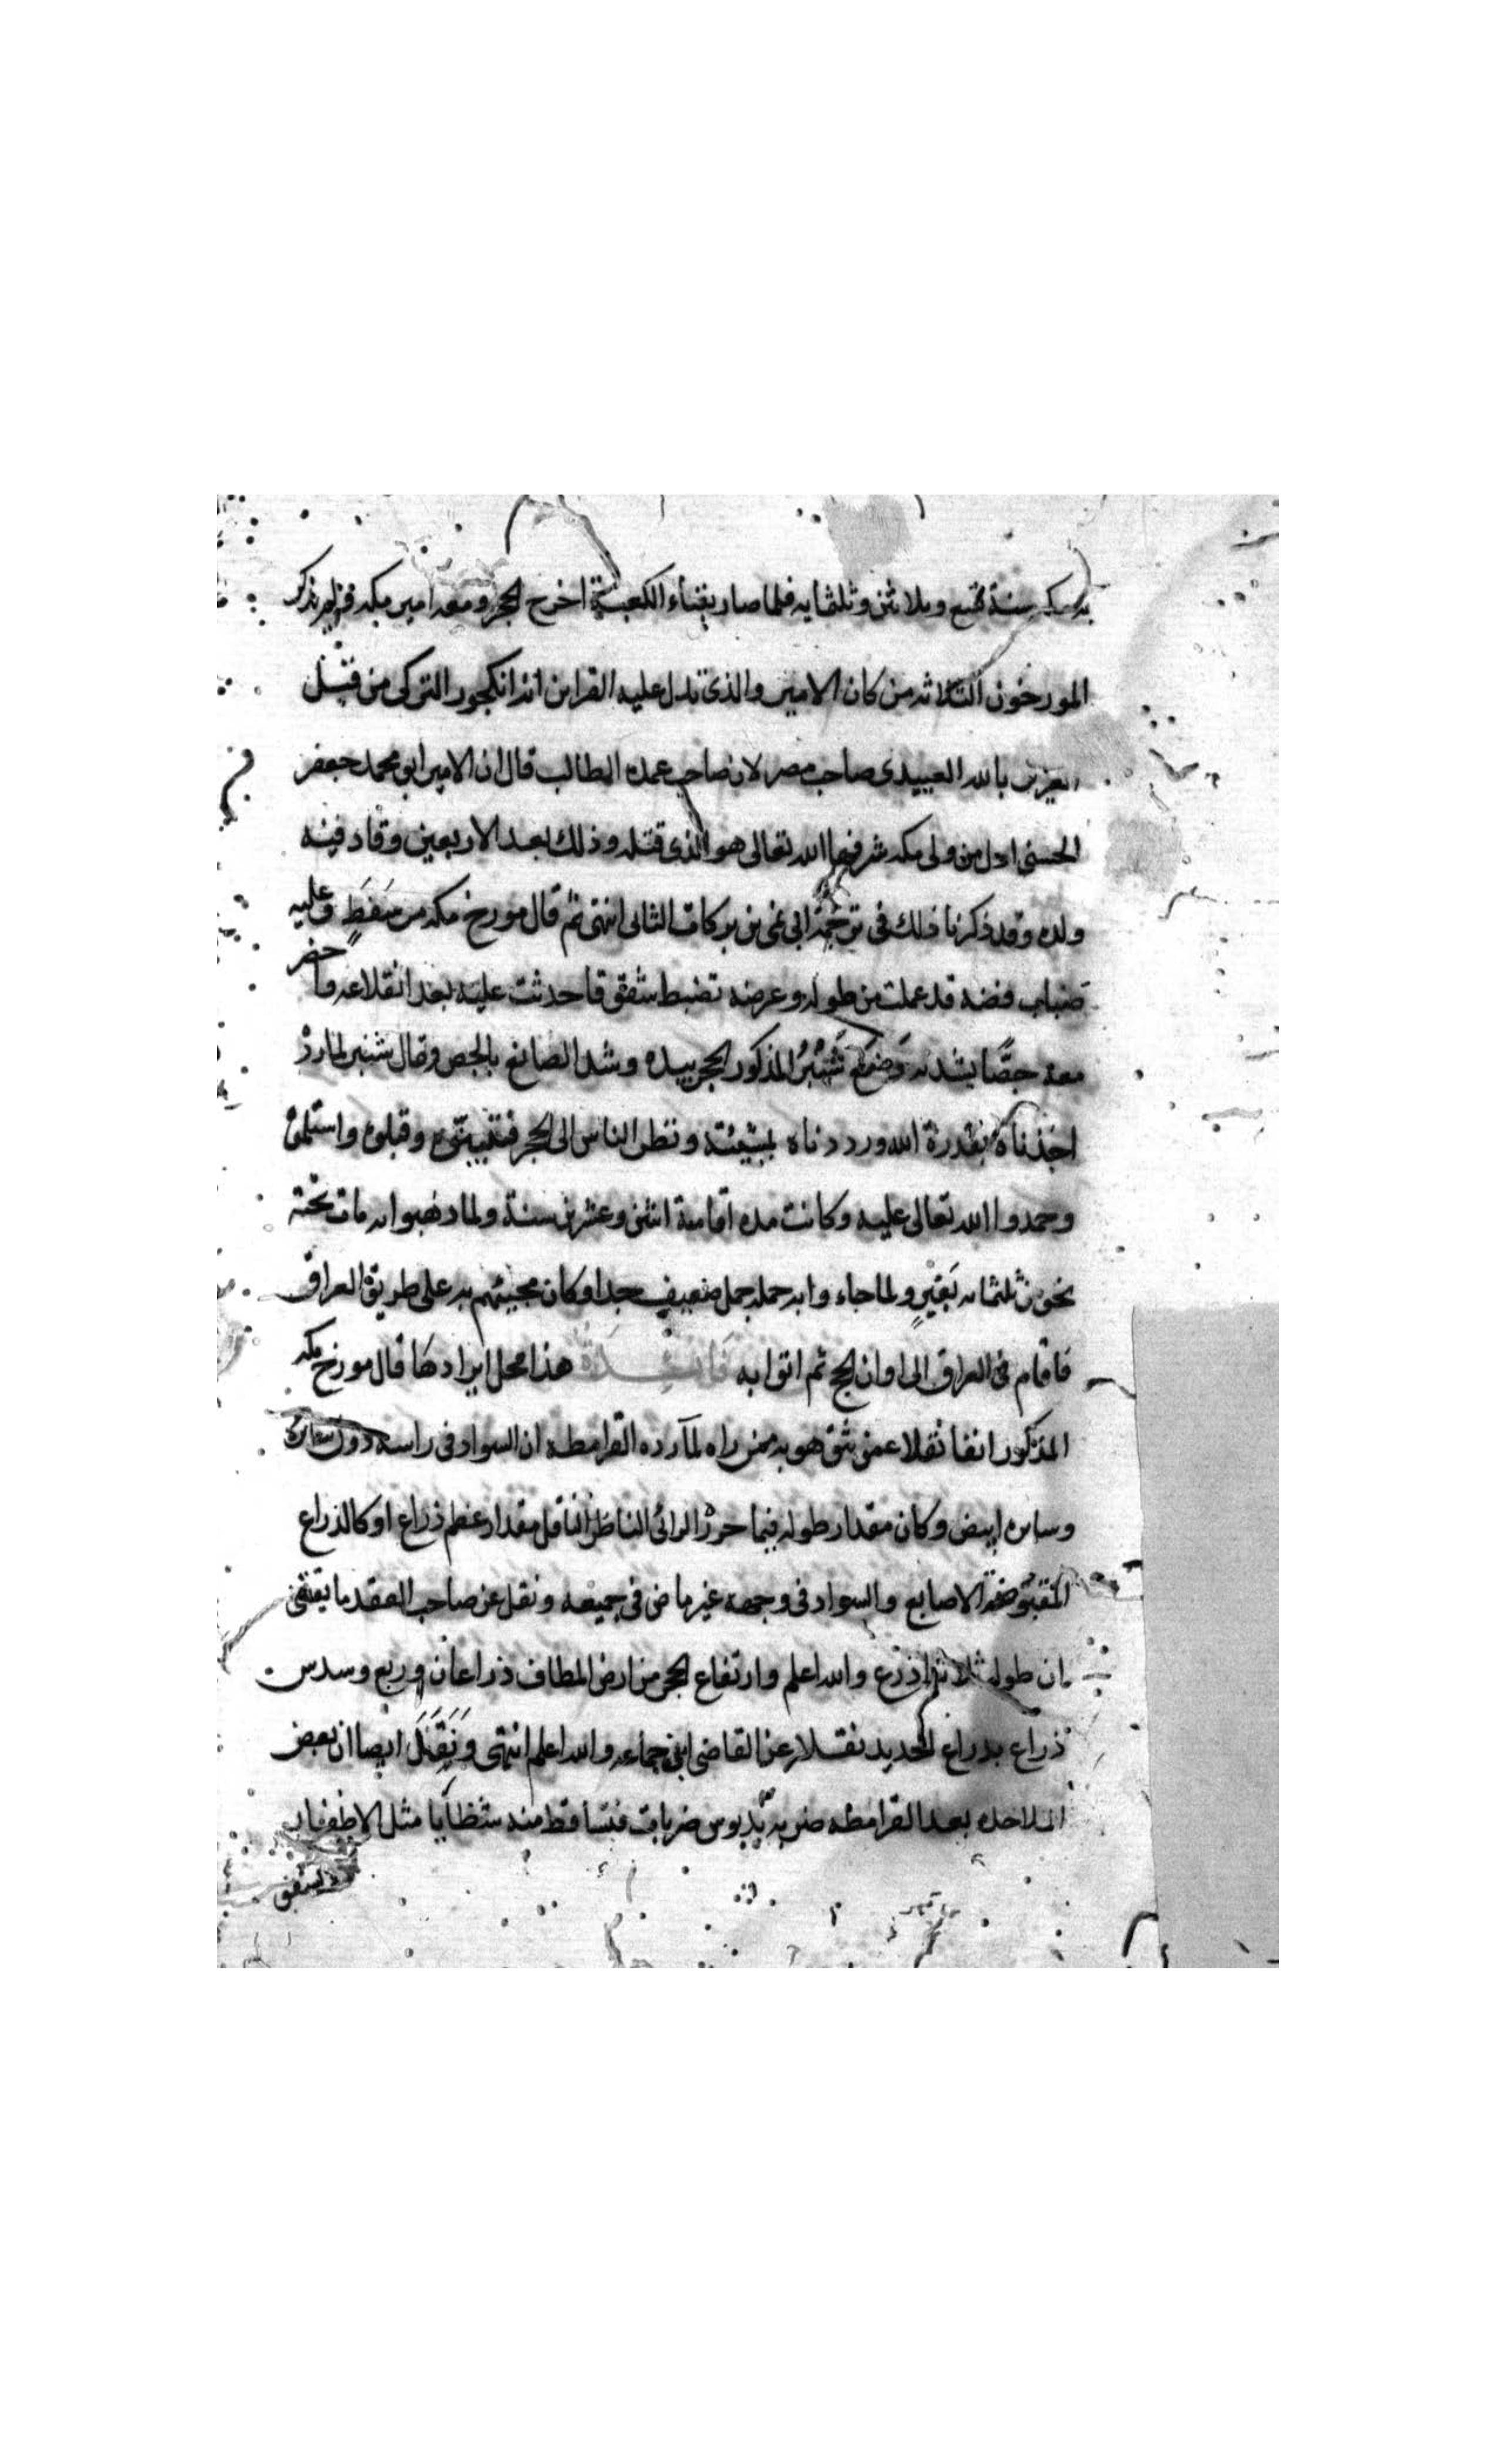 سنة تسع وثلاثين وثلثمايه فلما صار بفناء الكعبة اخرج الحجر ومعه امير مكه فلم يذكر
المورخون الثلاثه من كان الامير والذى تدل عليه القراين انه انكجور التركى من قبل
العزيز بالله العبيدى صاحب مصر لان صاحب عمده الطالب قال ان الامير ابو محمد جعفر
الحسنى اول من ولى مكه شرفها الله تعالى هو الذى قتله وذلك بعد الاربعين وقاد فيه
ولده وقد ذكرنا ذلك فى ترجمة ابى نمى بن بركات الثانى انتهى ثم قال مورخ مكه من سَفَطٍ وعليه
ضباب فضه قد عملت من طوله وعرضه تضبط شقوقا حدثت عليه بعد انقلاعه واحضر
معه جصًّا يشده فوضع شَنْبَرُ المذكور الحجر بيده وشد الصانع بالجص وقال شنبر لما رد
اخذناه بقدرة الله ورددناه بمشيئته ونظر الناس الى الحجر فتبينوه وقبلوه واستلموه
وحمدوا الله تعالى عليه وكانت مده اقامته اثنين وعشرين سنة ولما ذهبوا به مات تحته
نحو من ثلثمايه بَعِيْرٍ ولما جاءوا به حمله جمل ضعيف جدا وكان مجيئهم به على طريق العراق
فاقام فى العراق الى اوان الحج ثم اتوا به فَائِـــدَة هذا محل ايرادها قال مورخ مكه
المذكور انفا نقلا عمن يثق هو به ممن راه لما رده القرامطه ان السواد فى راسه دون سايره
وسايره ابيض وكان مقدار طوله فيما حرز الرائى الناظر الناقل مقدار عظم ذراع او كالذراع
المقبوضة الاصابع والسواد فى وجهه غير ماض فى جميعه ونقل عن صاحب العقد ما يقتضى
ان طوله ثلاثة اذرع والله اعلم وارتفاع الحجر من ارض المطاف ذراعان وربع وسدس
ذراع بذراع الحديد نقلا عن القاضى ابن جماعه والله اعلم انتهى وَنَقَلَ ايضا ان بعض
الملاحده بعد القرامطه ضربه بدبوس ضربات فتساقط منه شظايا مثل الاظفار